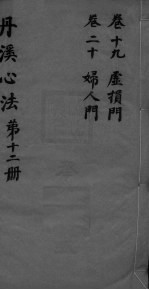 卷十九 虛損門
卷二十 婦人門
丹溪心法 第十二册